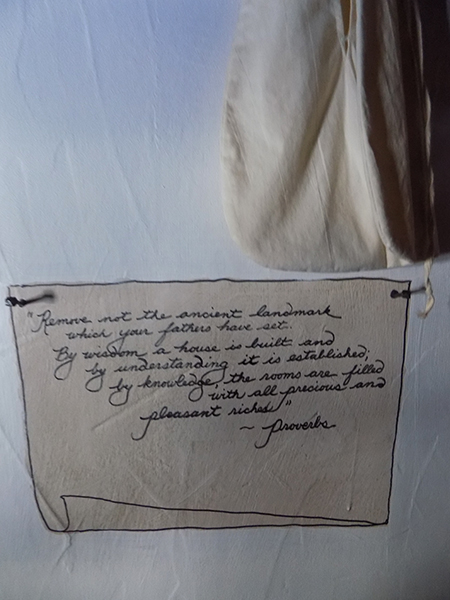 "Remove not the ancient landmark
which your fathers have set..
By wisdom a house is built and
by understanding it is established;
by knowledge the rooms are filled
with all precious and
pleasant riches."
~ Proverbs